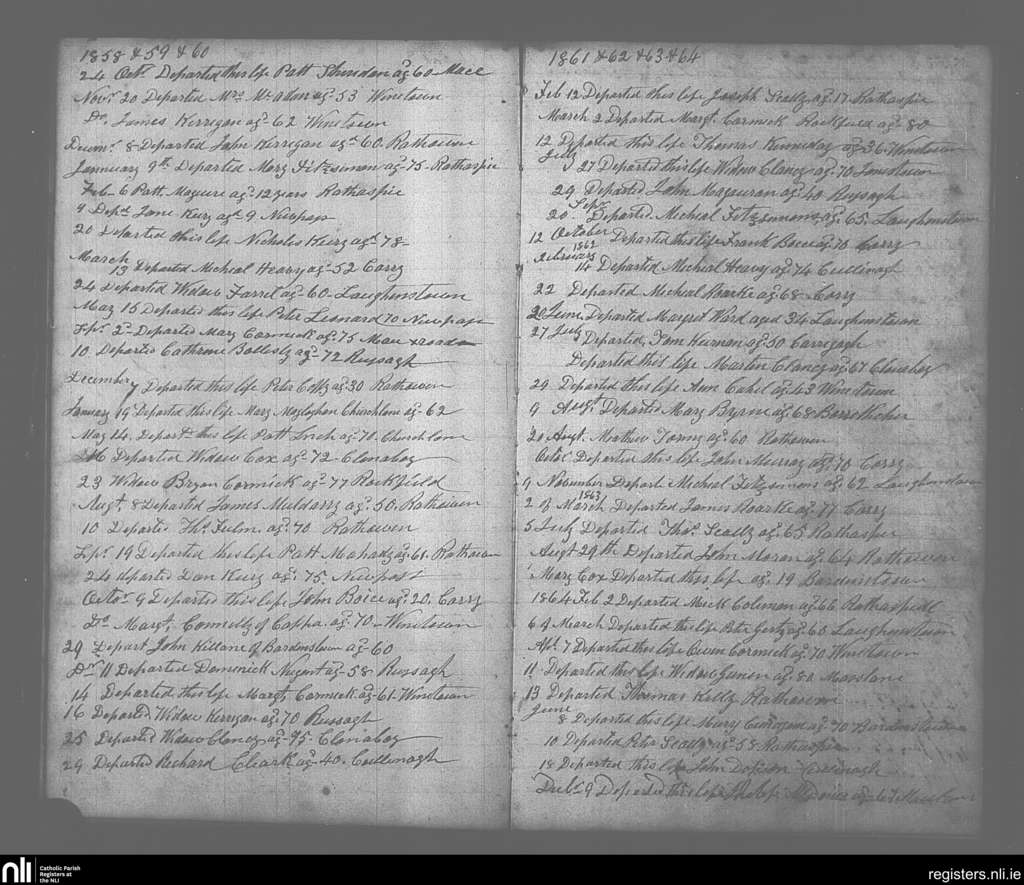 1858 & 59 & 60
24 Octr. Departed this life Patt Sheridan agd 60 Mace
Novr. 20 Departed Mrs McAdam agd 53 Winetown
Do. James Kerrigan agd 62 Winetown
Decemr. 8 Departed John Kerrigan agd 60 Rathowen
Jannuary 9th Departed Mary Fitzsimon agd 75 Rathaspic
Feb 6 Patt Maguire agd 12 years Rathaspic
4 Depd Jane Kury agd 9 Newpass
20 Departed this life Nicholes Kury agd 78
March
13 Departed Micheal Heavy agd 52 Corry
24 departed Widow Farrel agd 60 Laughenstown
May 15 Departed this life Peter Leonard 70 Newpass
2d Departed Mary Cormick agd 75
10 Departed Catherine agd 72 Russagh
December
7 Departed this life Peter Coffy agd 30 Rathowen
January 19 Departed this life Mary Churchlone agd 62
May 14 Departd this life Patt Linch agd 70 Churchlone
Departed Widow Cox agd 72 Clonabog
23 Widow Bryan Cormick agd 77 Rockfield
Augt. 8 Departed James Muldarry agd 50 Rathowen
10 Departed Thos agd 70 Rathowen
19 Departed this life Patt Mahady agd 61 Rathowen
24 departed Dan Kury agd 75 Newpass
Octor 9 Departed this life John Boice agd 20 Corry
Do. Margt. Connelly of Cappa agd 70 Winetown
29 Depart John Killane of Bardinstown agd 60
Dr 11 Departed Domenick Nugent agd 58 Russagh
14 Departed this life Margt Cormick agd 61 Winetown
16 Departed Widow Kerrigan agd 70 Russagh
25 Departed Widow Clancy agd 95 Clonabog
29 Departed Richard Cleark agd 40 Cullinagh
1861 & 62 & 63 & 64
Feb 12 Departed this life Joseph Scally agd 17 Rathaspic
March 2 Departed Margt. Cormick Rockfield agd 80
12 Departed this life Thomas Kenneday agd 36 Winetown
July
27 Departed this life Widow Clancy agd 70 Jamstown
29 Departed John agd 40 Russagh
Sepr
20 Departed Micheal Fitzsimons agd 65 Laughenstown
12 October Departed this life Frank Boice agd 70 Corry
1862
February
14 Departed Micheal Heavy agd 74 Cullinagh
22 Departed Micheal Roarke agd 68 Corry
20 June Departed Margret Ward aged 34 Laughenstown
27 July
Departed Tom Kurnan agd 50 Carrigagh
Departed this life Martin Clancy agd 67 Clonabog
29 Departed this life Ann Cahil agd 63 Winetown
9 Augt. Departed Mary Byrne agd 68
20 Augt. Mathew agd 60 Rathowen
Octor Departed this life John Murray agd 70 Corry
9 November Depart Micheal Fitzsimons agd 62 Laughenstown
1863
2 of March Departed James Roarke agd 77 Corry
5 July Departed Thos. Scally agd 65 Rathaspic
Augt 29th Departed John Moran agd 64 Rathowen
Mary Cox Departed this life agd 19 Bardinstown
1864 Feb 2 Departed Mick Coleman agd 66 Rathaspic
6 March Departed this life Peter agd 60 Laughenstown
Apl. 7 Departed this life Owen Cormick agd 70 Winetown
11 Departed this life Widow agd 80
13 Departed Thomas Kelly Rathowen
June
8 Departed this life agd 70 Bardinstown
10 Departed Peter Scally agd 58 Rathaspic
18 Departed this life John
9 Departed this life Philip agd
nli
Catholic Parish
Registers at
the NLI
registers.nli.ie